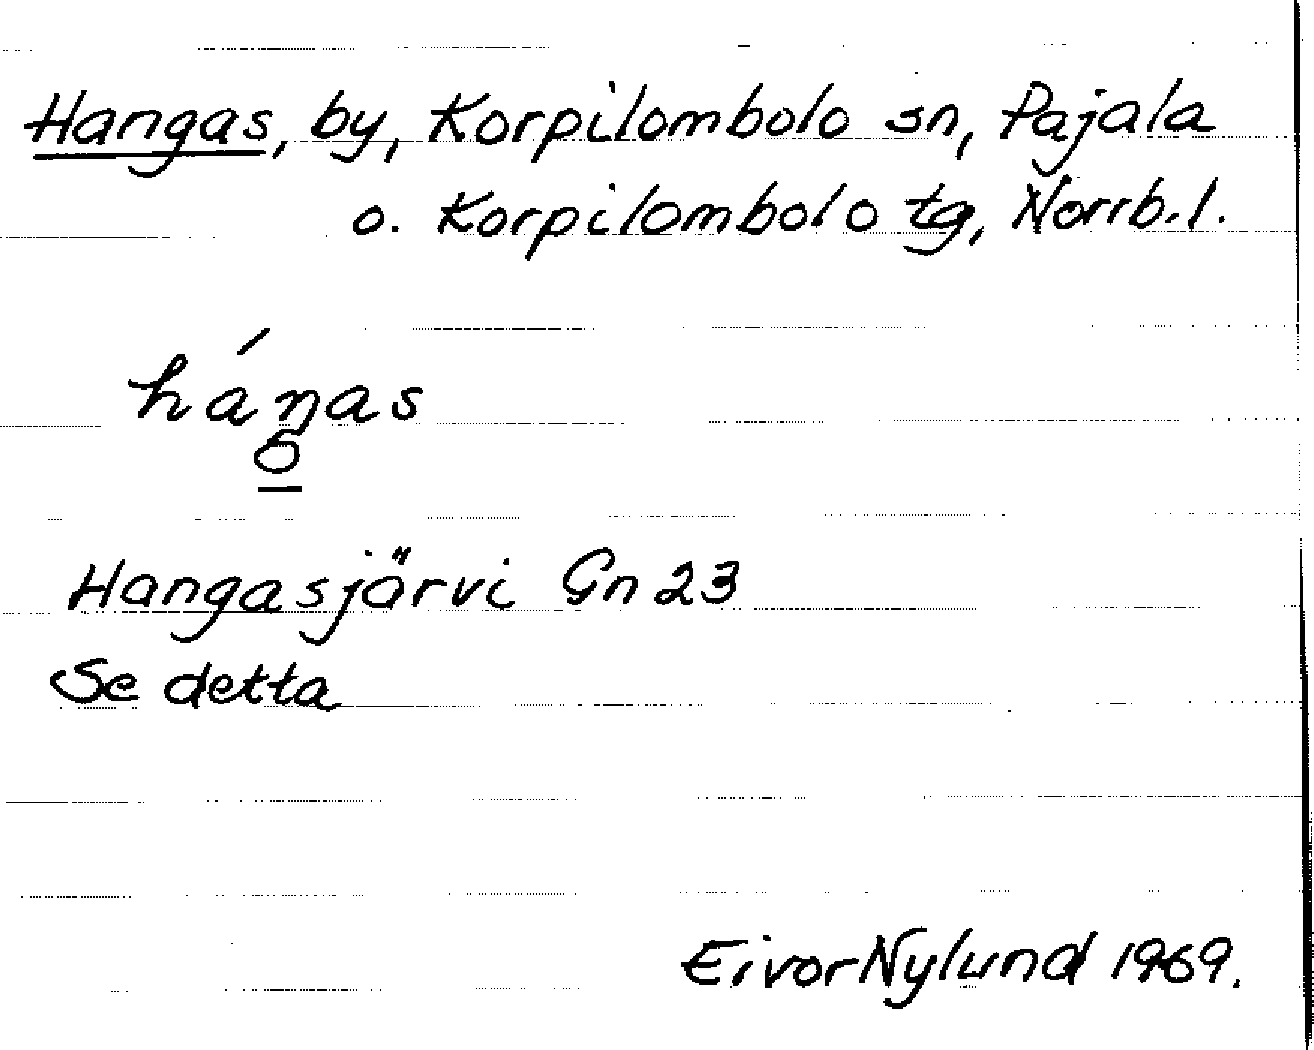 Hangas, by, Korpilombolo sn, Pajala
o. Korpilombolo tg, Norrb.l.
háŋas
Hangasjärvi Gn 23
Se detta
Eivor Nylund 1969.